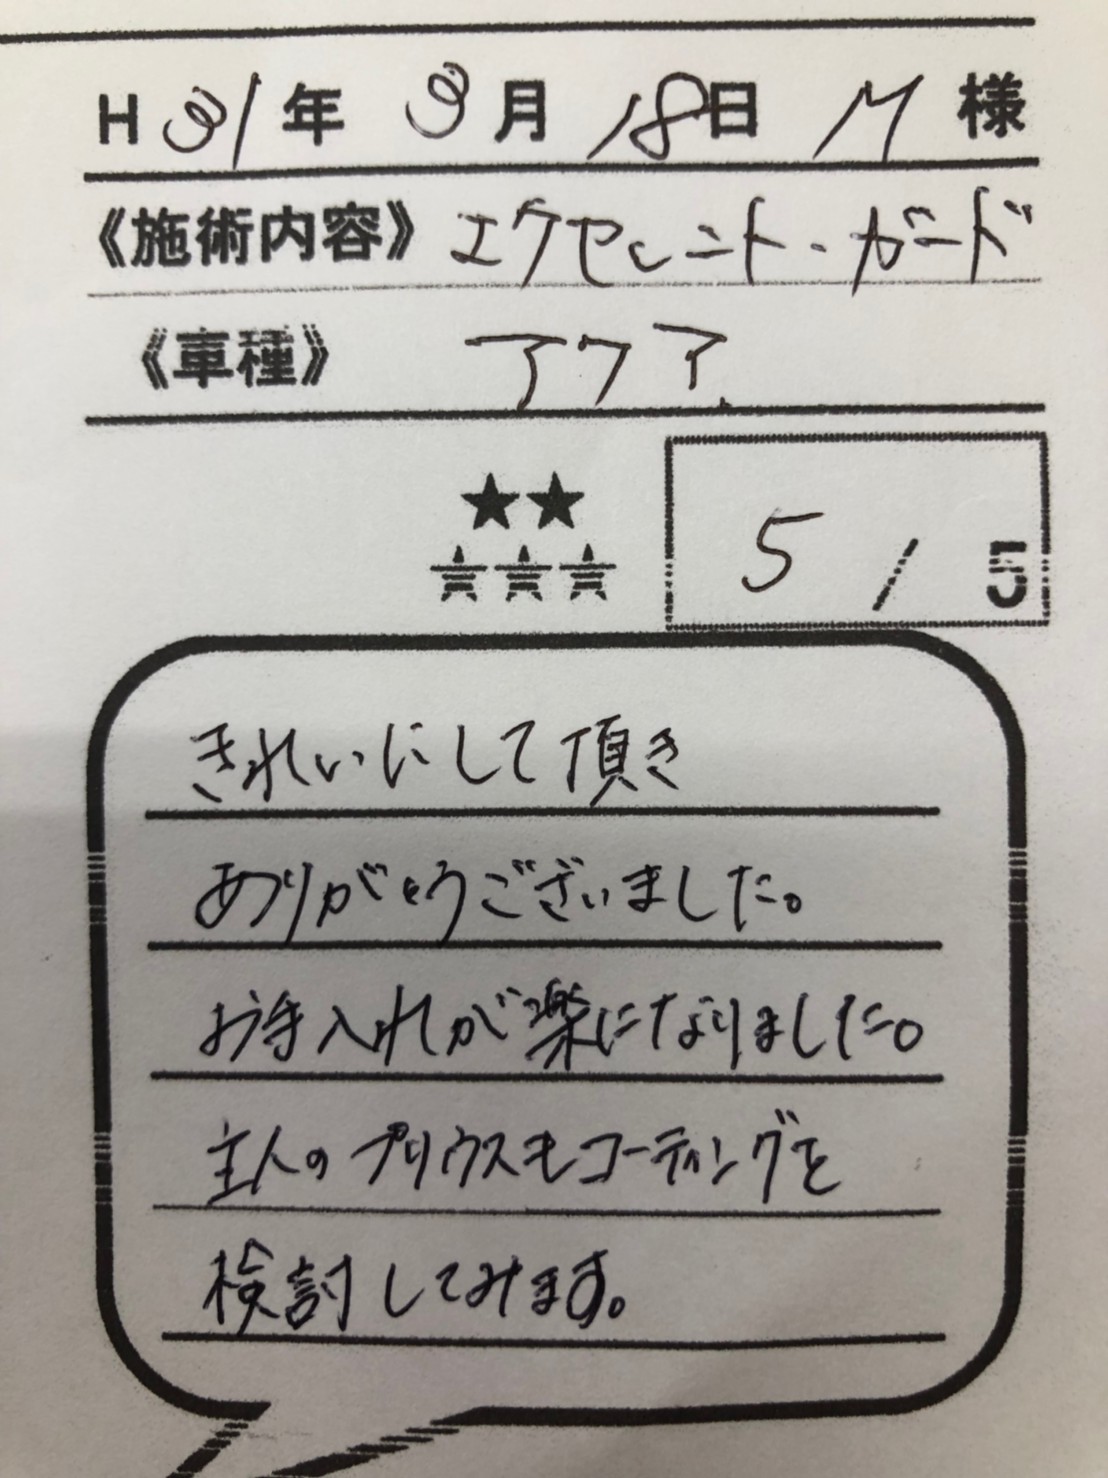 H31年 3月 18日 M 様
《施術内容》エクセレント・ガード
《車種》 アクア
★★
★★★ 5 / 5
きれいにして頂き
ありがとうございました。
お手入れが楽になりました。
主人のプリウスもコーティングを
検討してみます。